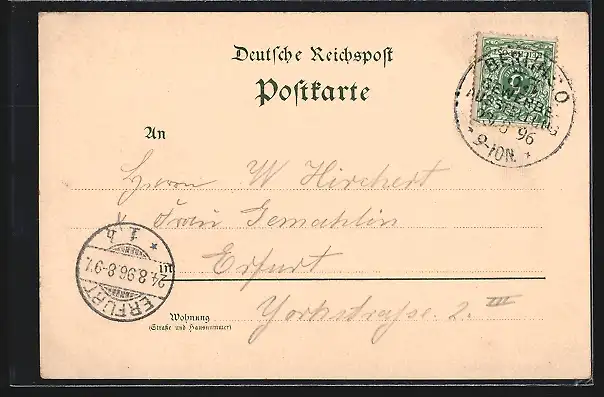 Deutsche Reichspost
Postkarte
BERLIN S.O.
GEWERBE
AUSSTELLUNG
8 96
9-10N.
An
Herrn W Hirchert
& Frau Gemahlin
in Erfurt
Yorkstraße 2. III
Wohnung
(Straße und Hausnummer)
ERFURT
24.8.96.8-9V.
* 1 h